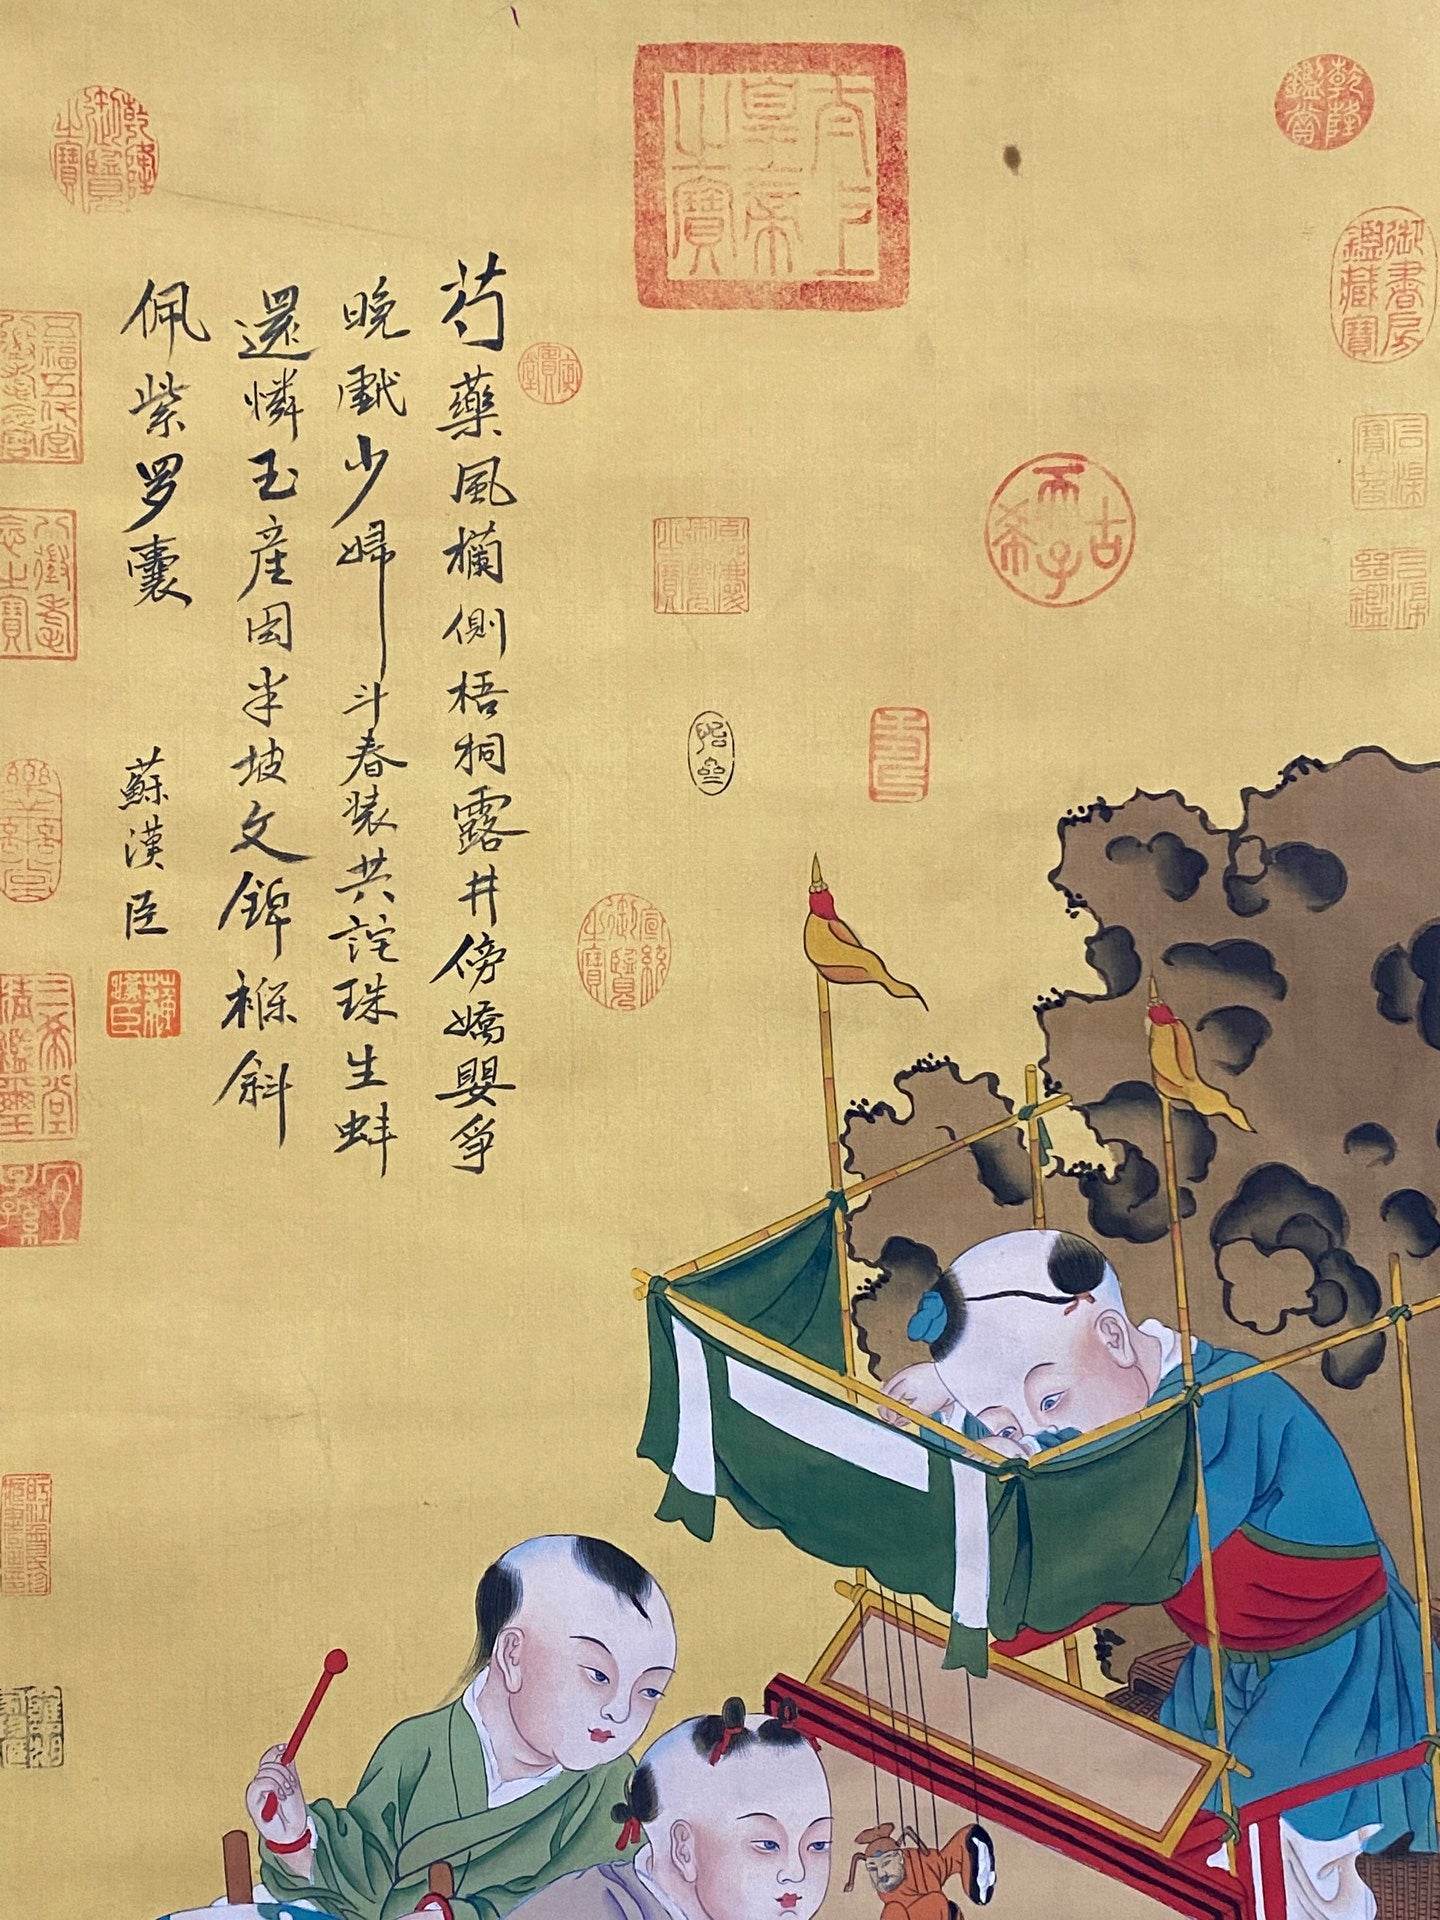 乾隆鑑賞
御書房鑑藏寶
太上皇帝之寶
乾隆御覽之寶
古希天子
石渠寶笈
嘉慶御覽之寶
宣統御覽之寶
芍藥風欄側梧桐露井傍嬌嬰爭
晚戲少婦斗春装共詫珠生蚌
還憐玉産岡半坡文錦褓斜
佩紫罗囊
蘇漢臣
蘇漢臣
八徵耄念之寶
三希堂精鑑璽
宜子孫